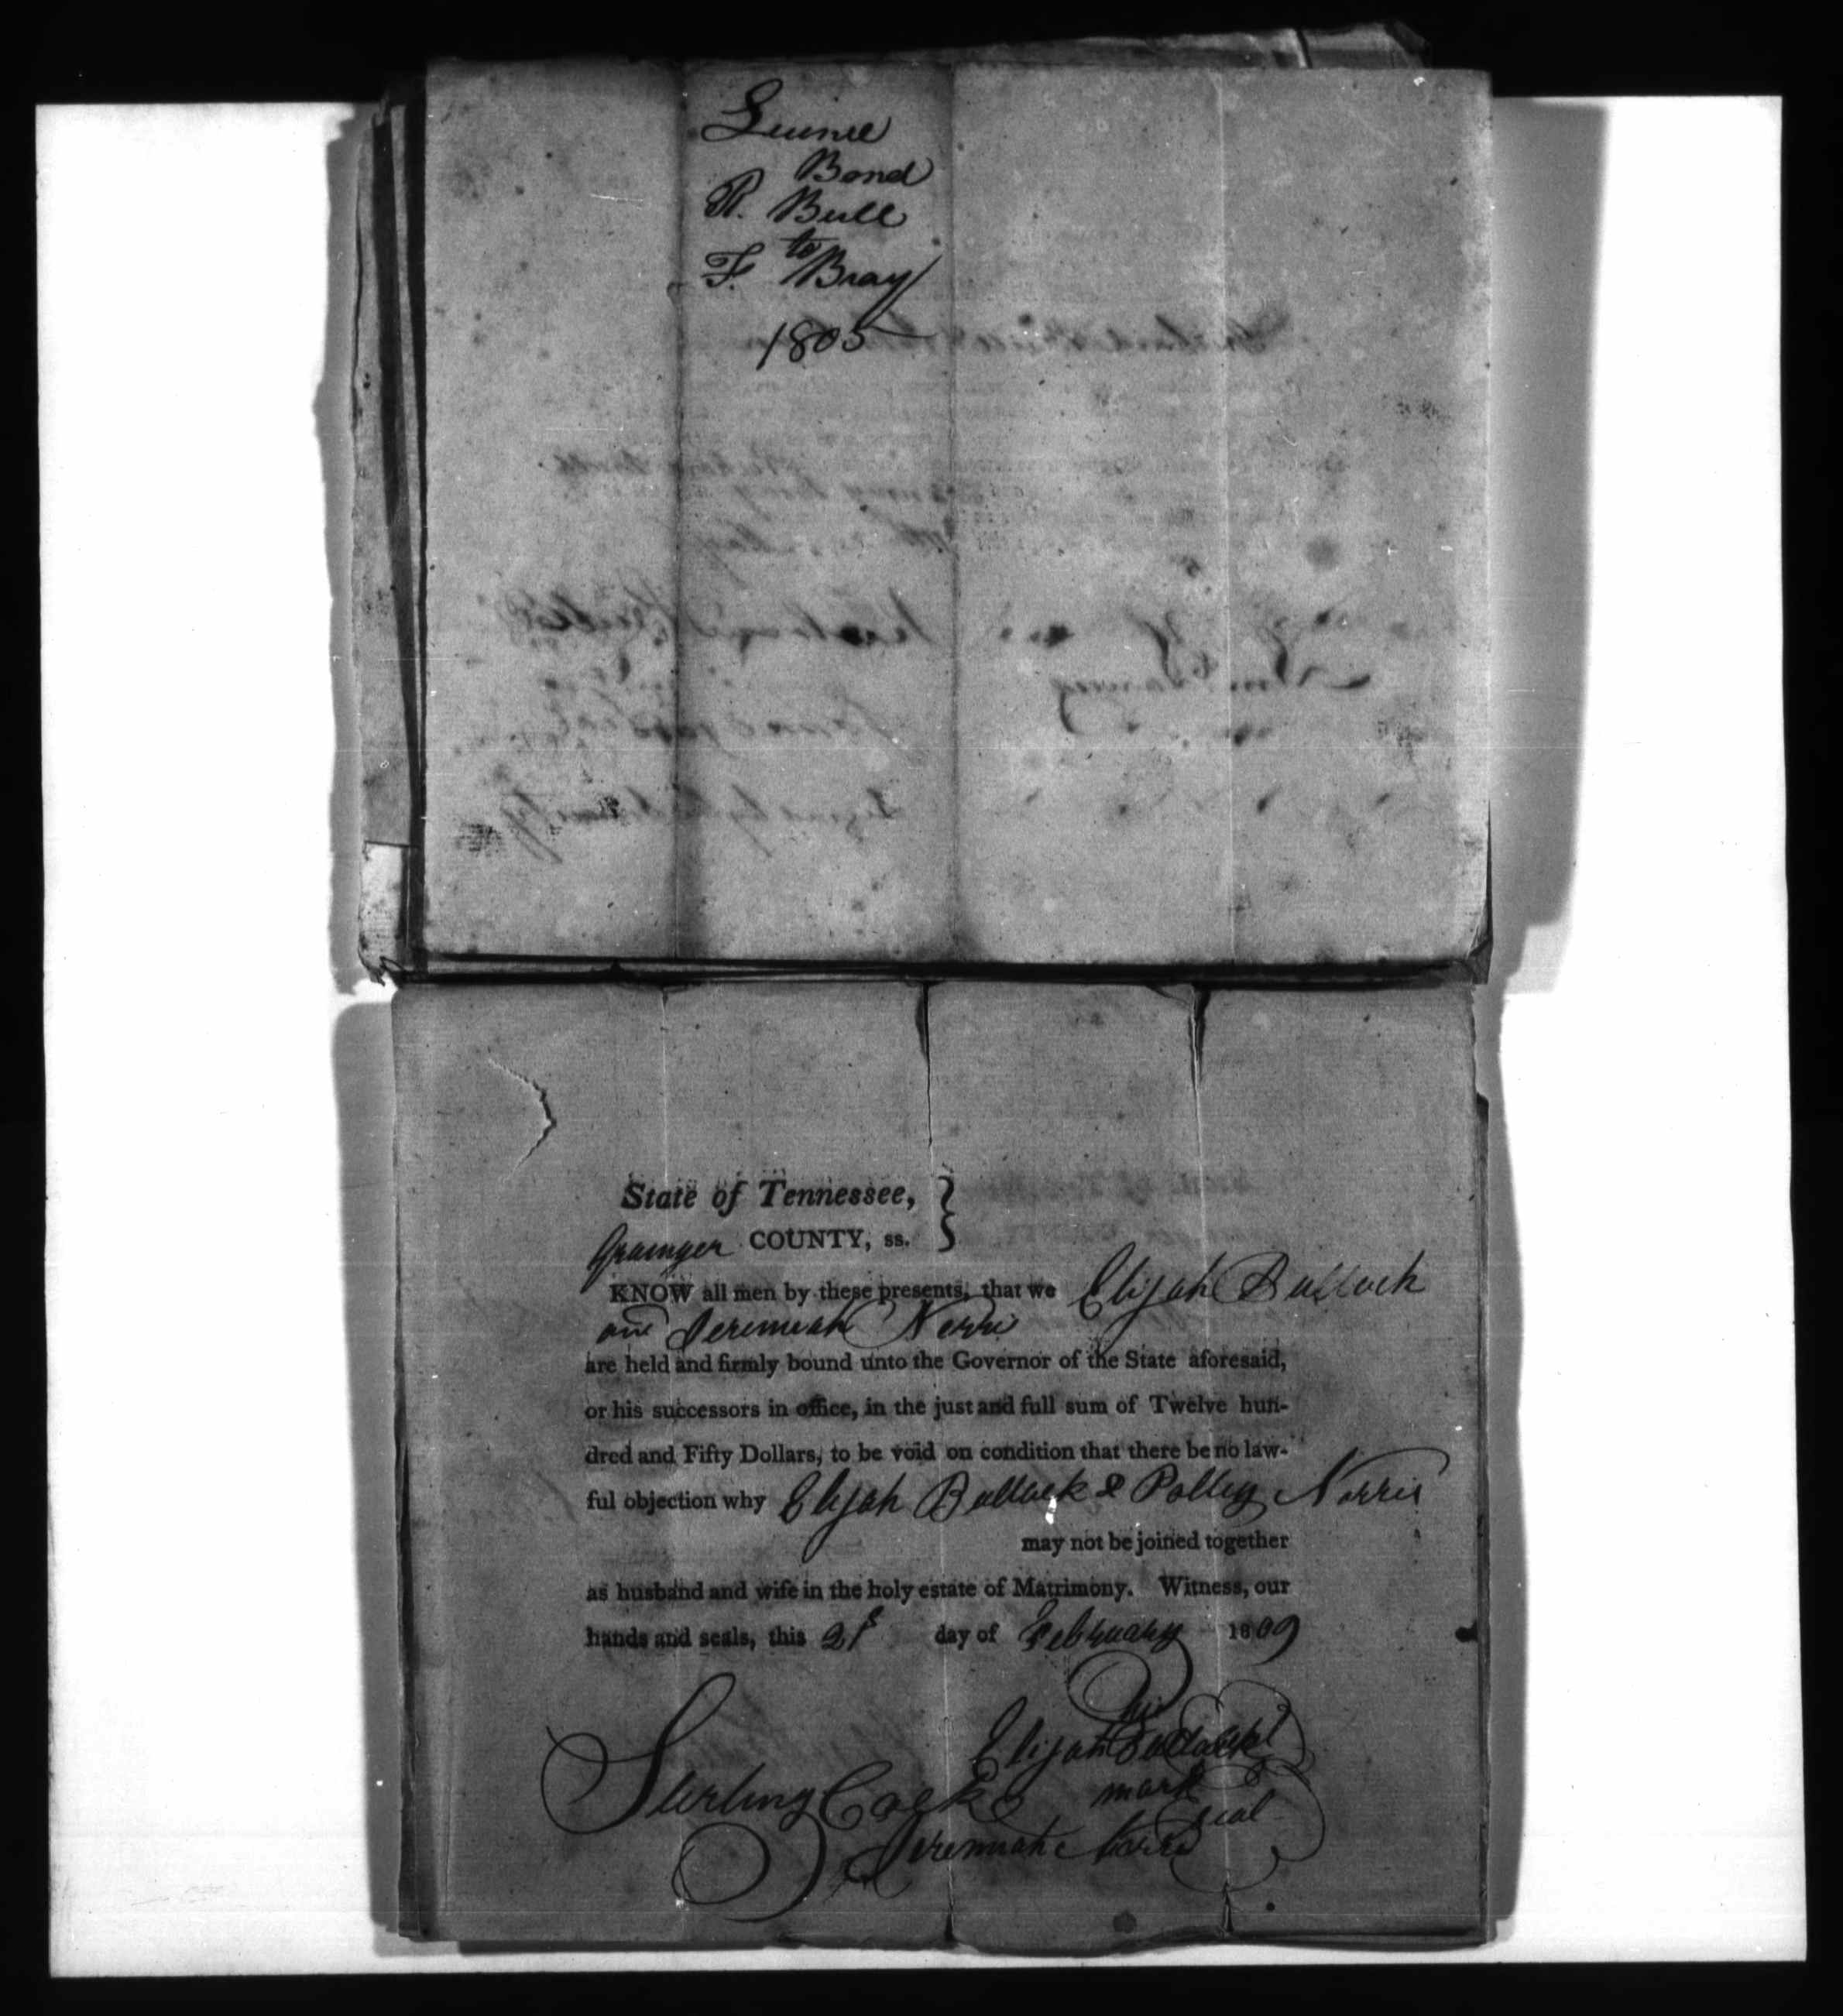 Bond
R. Bull
to
F. Bray
1805
State of Tennessee,
Grainger COUNTY, ss.
KNOW all men by these presents, that we Elijah Bullock
and Jeremiah Norris
are held and firmly bound unto the Governor of the State aforesaid,
or his successors in office, in the just and full sum of Twelve hun-
dred and Fifty Dollars, to be void on condition that there be no law-
ful objection why Elijah Bullock & Polley Norris
may not be joined together
as husband and wife in the holy estate of Matrimony. Witness, our
hands and seals, this 21st day of February 1809
his
Elijah Bullock seal
Sterling Cocke mark
Jeremiah Norris seal